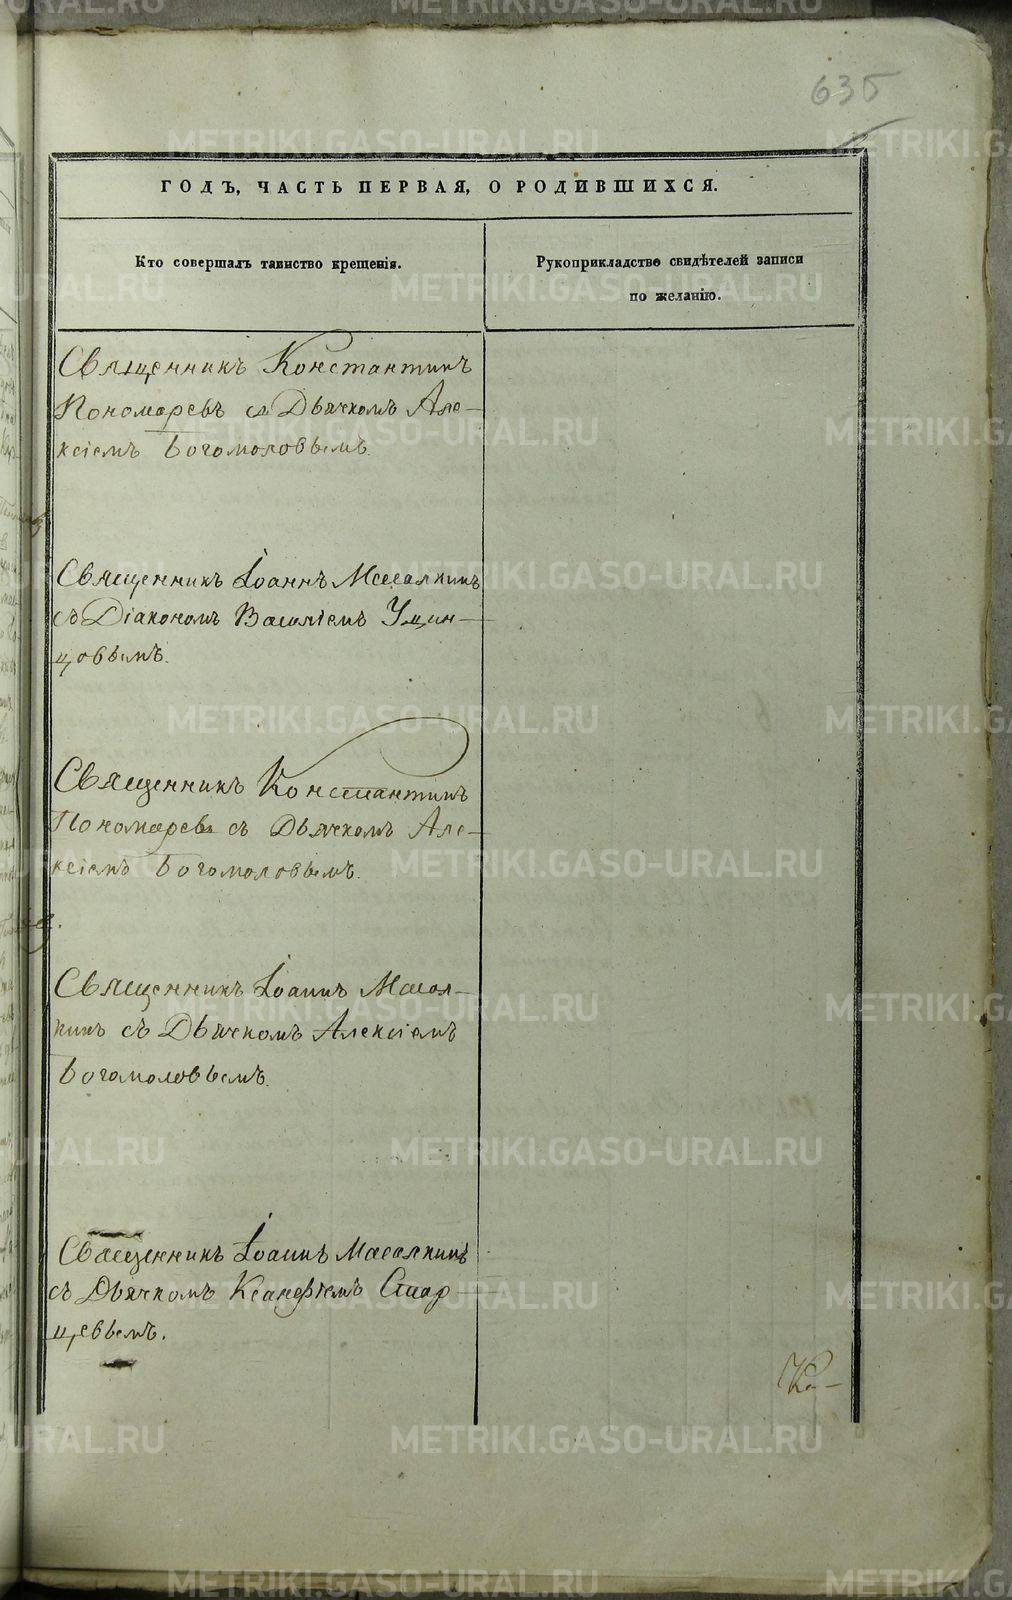 635
ГОДЪ, ЧАСТЬ ПЕРВАЯ, О РОДИВШИХСЯ.
Кто совершалъ таинство крещенія.
Рукоприкладство свидѣтелей записи
по желанію.
Священникъ Константинъ
Пономаревъ съ Дьячкомъ Але-
ксіемъ Богомоловымъ.
Священникъ Іоаннъ Масалкинъ
съ Діакономъ Василіемъ Удин-
цовымъ.
Священникъ Константинъ
Пономаревъ съ Дьячкомъ Але-
ксіемъ Богомоловымъ.
Священникъ Іоаннъ Масал-
кинъ съ Дьячкомъ Алексіемъ
Богомоловымъ.
Священникъ Іоаннъ Масалкинъ
съ Дьячкомъ Ксанфіемъ Стар-
цевымъ.
METRIKI.GASO-URAL.RU